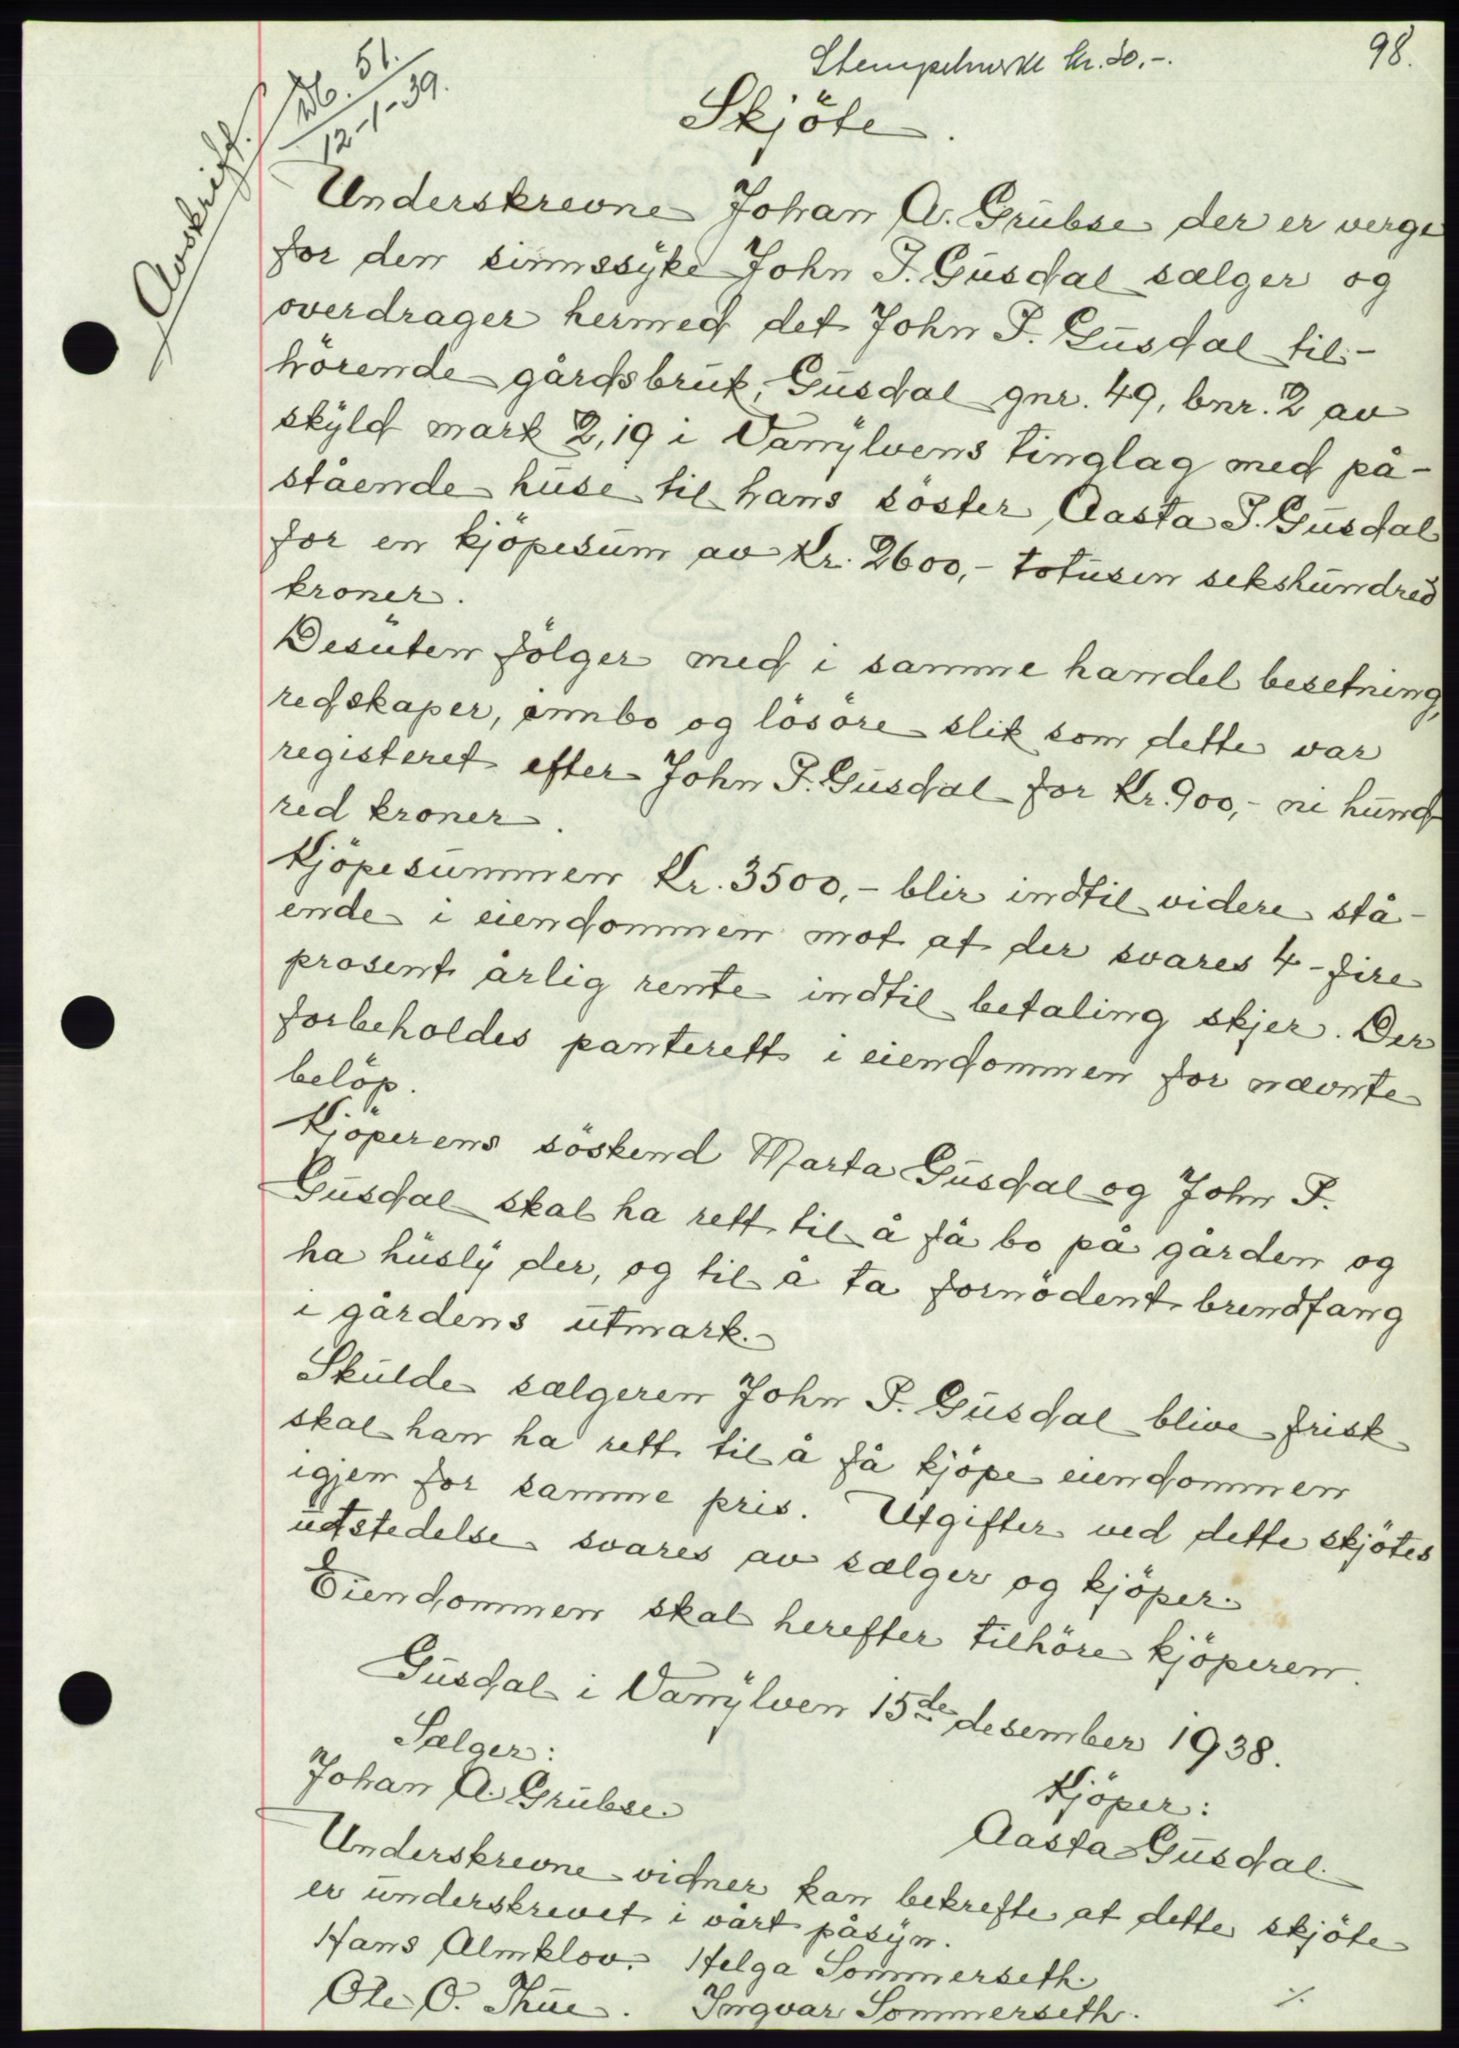 98.
Stempelmerke kr. 30.-.
Db. 51.
12-1-39.
Avskrift.
Skjöte.
Underskrevne Johan A. Grubse der er verge
for den sinnssyke John P. Gusdal sælger og
overdrager hermed det John P. Gusdal til-
hörende gårdsbruk, Gusdal gnr. 49, bnr. 2 av
skyld mark 2,19 i Vanylvens tinglag med på-
stående huse til hans söster, Aasta P. Gusdal
for en kjöpesum av Kr. 2600,- totusen sekshundred
kroner.
Desuten fölger med i samme handel besetning,
redskaper, innbo og lösöre slik som dette var
registeret efter John P. Gusdal for Kr. 900,- ni hund
red kroner.
Kjöpesummen Kr. 3500,- blir indtil videre stå-
ende i eiendommen mot at der svares 4 - fire
prosent årlig rente indtil betaling skjer. Der
forbeholdes panterett i eiendommen for nævnte
belöp.
Kjöperens söskend Marta Gusdal og John P.
Gusdal skal ha rett til å få bo på gården og
ha husly der, og til å ta fornödent brendfang
i gårdens utmark.
Skulde sælgeren John P. Gusdal blive frisk
skal han ha rett til å få kjöpe eiendommen
igjen for samme pris. Utgifter ved dette skjötes
utstedelse svares av sælger og kjöper.
Eiendommen skal herefter tilhöre kjöperen.
Gusdal i Vanylven 15de desember 1938.
Sælger:
Johan A. Grubse.
Kjöper:
Aasta Gusdal.
Underskrevne vidner kan bekrefte at dette skjöte
er underskrevet i vårt påsyn.
Hans Almklov. Helga Sommerseth.
Ole O. Thue. Ingvar Sommerseth.
./.